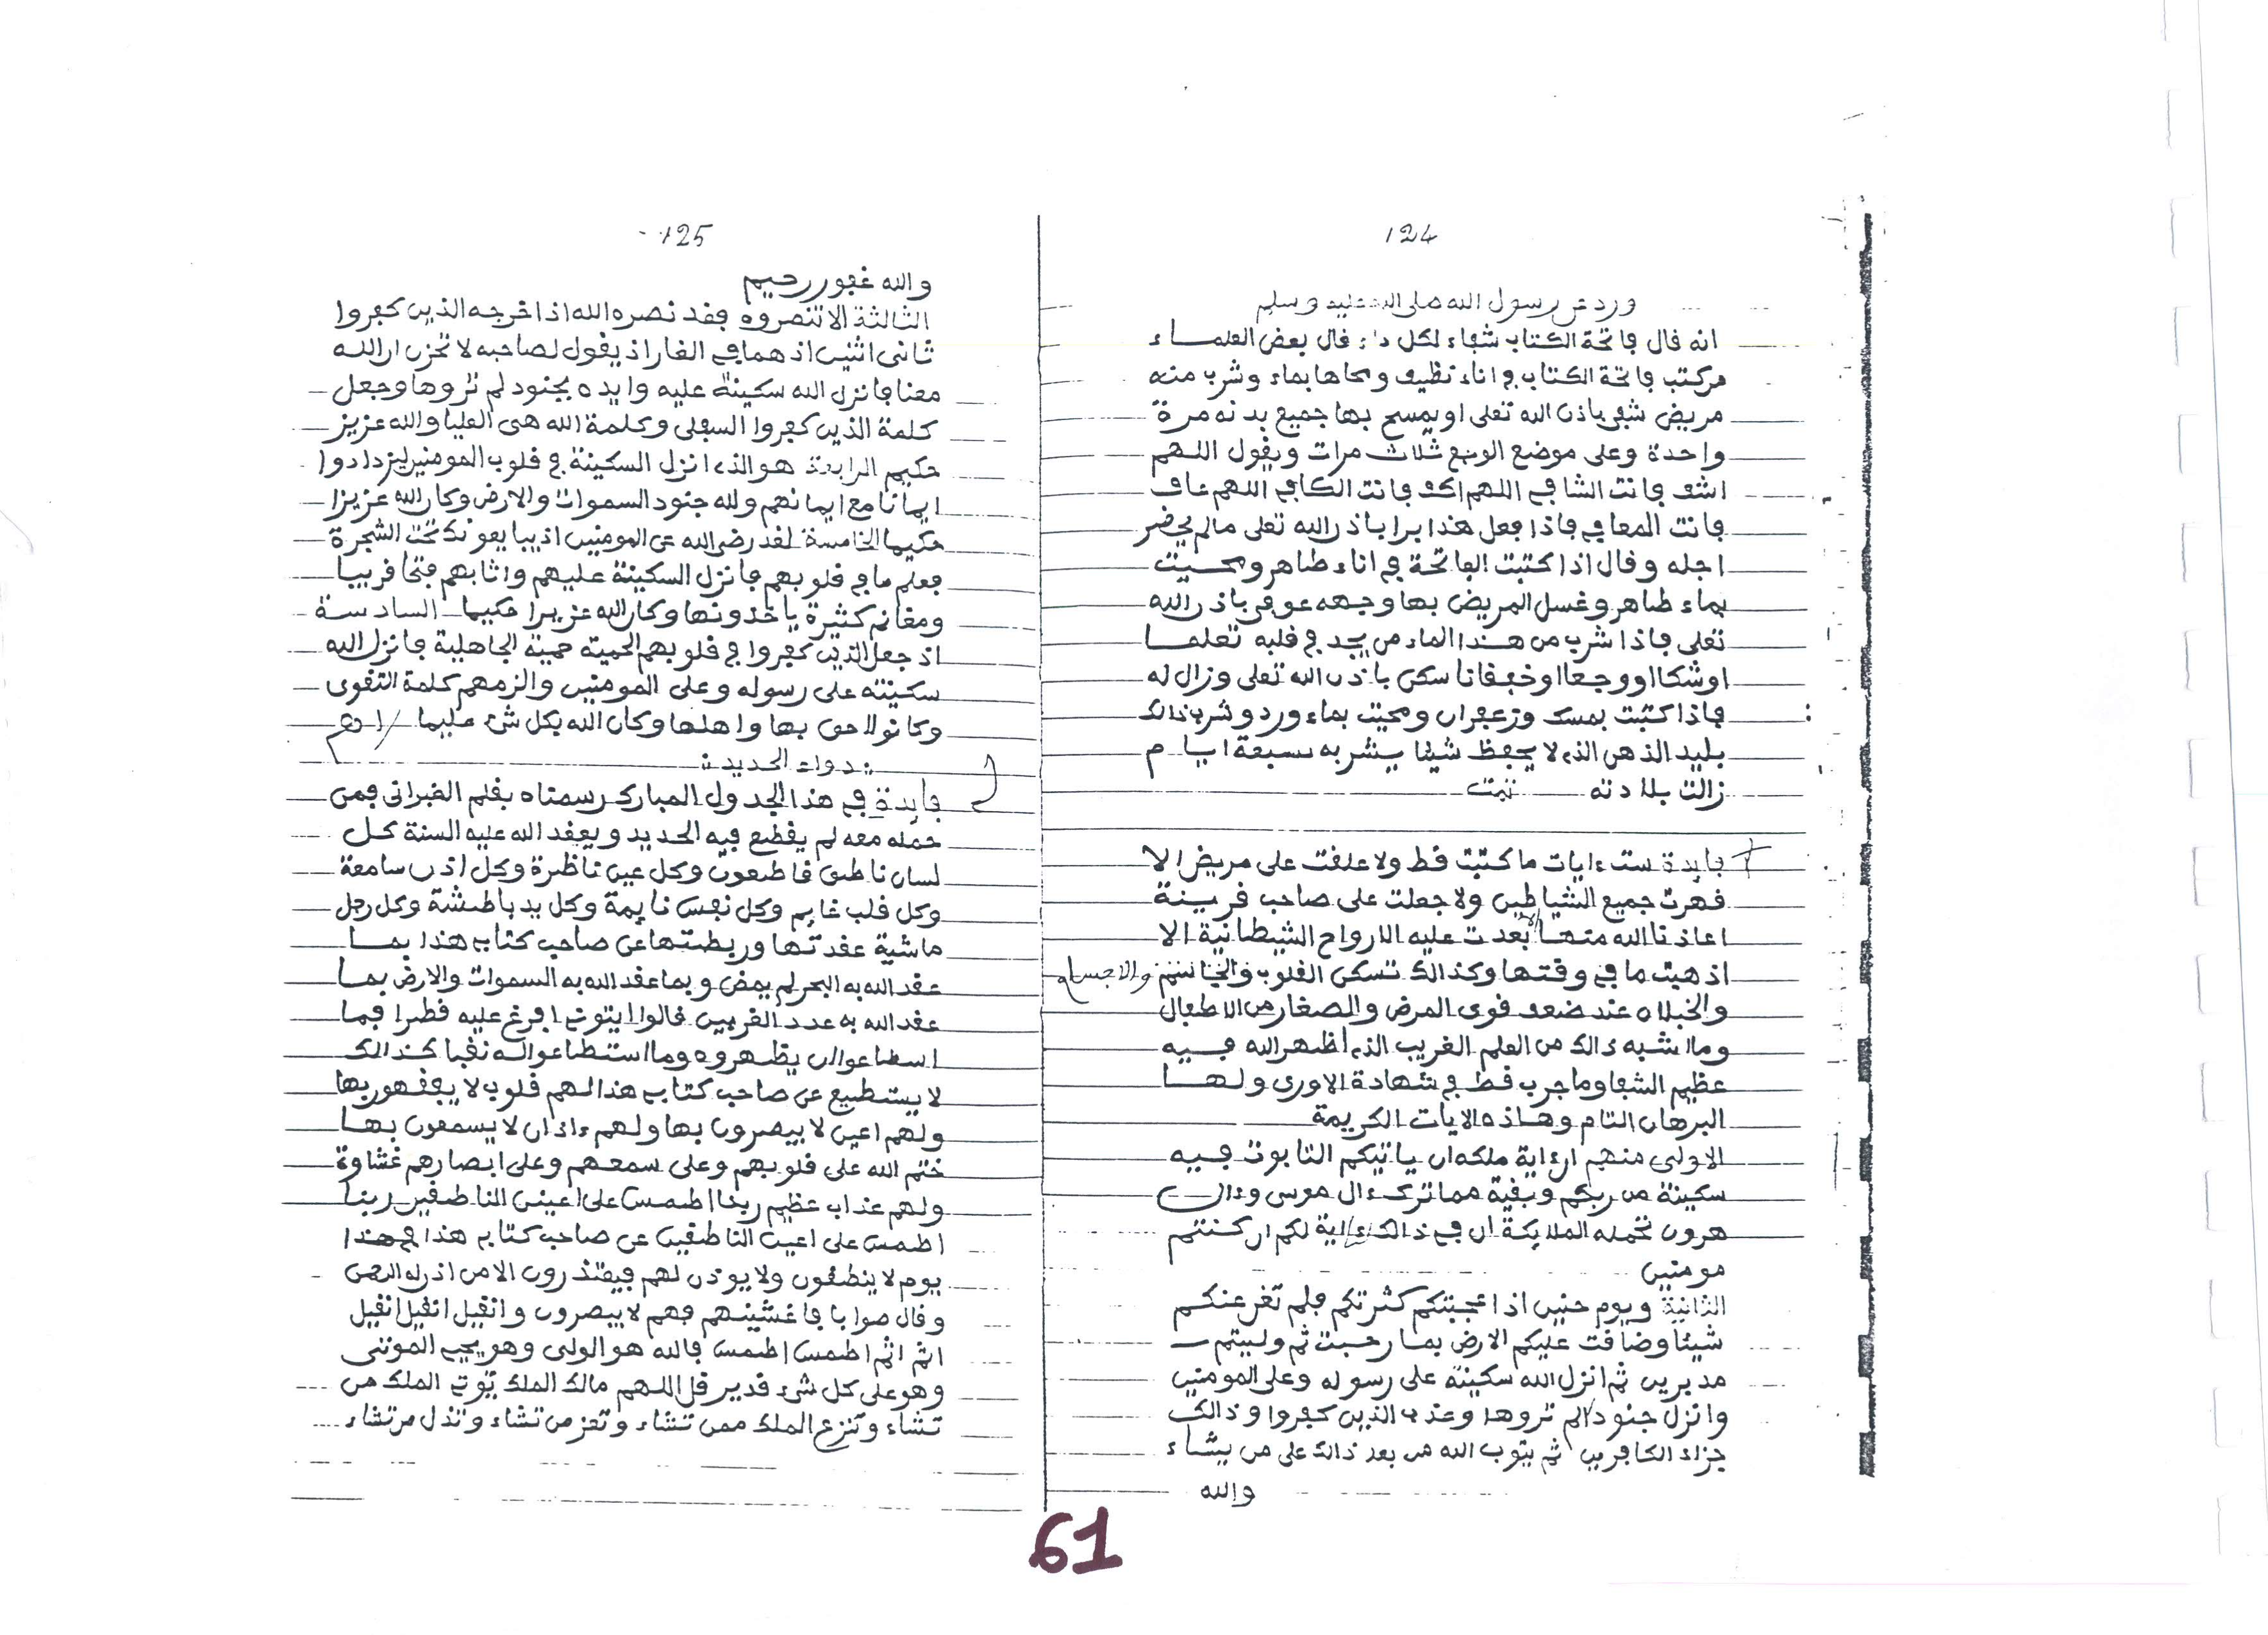 124
ورد عن رسول الله صلى الله عليه وسلم
انه قال فاتحة الكتاب شفاء لكل داء قال بعض العلماء
من كتب فاتحة الكتاب في اناء نظيف ومحاها بماء وشرب منه
مريض شفى باذن الله تعلى او يمسح بها جميع بدنه مرة
واحدة وعلى موضع الوجع ثلاث مرات ويقول اللهم
اشف فانت الشافي اللهم اكف فانت الكافي اللهم عاف
فانت المعافي فاذا فعل هذا برا باذن الله تعلى مالم يحضر
اجله وقال اذا كتبت الفاتحة في اناء طاهر ومحيت
بماء طاهر وغسل المريض بها وجهه عوفى باذن الله
تعلى فاذا شرب من هذا الماء من يجد في قلبه تعلما
او شكا او وجعا او خفقانا سكن باذن الله تعلى وزال له
فاذا كتبت بمسك وزعفران ومحيت بماء ورد وشرب ذالك
بليد الذهن الذى لا يحفظ شيئا يشربه سبعة ايام
زالت بلادته تمت
فايدة ست ءايات ما كتبت قط ولا علقت على مريض الا
قهرت جميع الشياطين ولا جعلت على صاحب قرينة
اعاذنا الله منها الا بعدت عليه الارواح الشيطانية الا
اذهبت ما في وقتها وكذالك تسكن القلوب والاجسام
والخبلاه عند ضعف قوى المرض والصغار من الاطفال
وما اشبه ذالك من العلم الغريب الذى اظهر الله فيه
عظيم الشفا وما جرب قط في شهادة الاورى ولها
البرهان التام وهاذه الايات الكريمة
الاولى منهم ان ءاية ملكه ان ياتيكم التابوت فيه
سكينة من ربكم وبقية مما ترك ءال موسى وءال
هرون تحمله الملايكة ان في ذالك ءلاية لكم ان كنتم
مومنين
الثانية ويوم حنين اذ اعجبتكم كثرتكم فلم تغن عنكم
شيئا وضاقت عليكم الارض بما رحبت ثم وليتم
مدبرين ثم انزل الله سكينته على رسوله وعلى المومنين
وانزل جنودا لم تروها وعذب الذين كفروا وذالك
جزاء الكافرين ثم يتوب الله من بعد ذالك على من يشاء
والله
125
والله غفور رحيم
الثالثة الا تنصروه فقد نصره الله اذ اخرجه الذين كفروا
ثانى اثنين اذ هما في الغار اذ يقول لصاحبه لا تحزن ان الله
معنا فانزل الله سكينته عليه وايده بجنود لم تروها وجعل
كلمة الذين كفروا السفلى وكلمة الله هى العليا والله عزيز
حكيم الرابعة هو الذى انزل السكينة في قلوب المومنين ليزدادوا
ايمانا مع ايمانهم ولله جنود السموات والارض وكان الله عزيزا
حكيما الخامسة لقد رضى الله عن المومنين اذ يبايعونك تحت الشجرة
فعلم ما في قلوبهم فانزل السكينة عليهم واثابهم فتحا قريبا
ومغانم كثيرة ياخذونها وكان الله عزيزا حكيما السادسة
اذ جعل الذين كفروا في قلوبهم الحمية حمية الجاهلية فانزل الله
سكينته على رسوله وعلى المومنين والزمهم كلمة التقوى
وكانوا احق بها واهلها وكان الله بكل شىء عليما
دواء الحديد
فايدة في هذا الجدول المبارك رسمناه بقلم الغبراني فمن
حمله معه لم يقطع فيه الحديد ويعقد الله عليه السنة كل
لسان ناطق قاطعون وكل عين ناظرة وكل اذن سامعة
وكل قلب غايم وكل نفس نايمة وكل يد باطشة وكل رجل
ماشية عقدتها وربطتها عن صاحب كتابى هذا بما
عقد الله به البحر لم يمض وبما عقد الله به السموات والارض بما
عقد الله به عدد القريين قالوا ايتونى افرغ عليه قطرا فما
اسطاعوا ان يظهروه وما استطاعوا له نقبا كذالك
لا يستطيع عن صاحب كتابى هذا لهم قلوب لا يفقهون بها
ولهم اعين لا يبصرون بها ولهم ءاذان لا يسمعون بها
ختم الله على قلوبهم وعلى سمعهم وعلى ابصارهم غشاوة
ولهم عذاب عظيم ربنا اطمس على اعين الناطقين ربنا
اطمس على اعين الناطقين عن صاحب كتابى هذا في هذا
يوم لا ينطقون ولا يوذن لهم فيعتذرون الا من اذن له الرحمن
وقال صوابا فاغشينهم فهم لا يبصرون وانقيل انقيل انقيل
اثم اثم اطمس اطمس فالله هو الولى وهو يحي الموتى
وهو على كل شىء قدير قل اللهم مالك الملك توتى الملك من
تشاء وتنزع الملك ممن تشاء وتعز من تشاء وتذل من تشاء
61